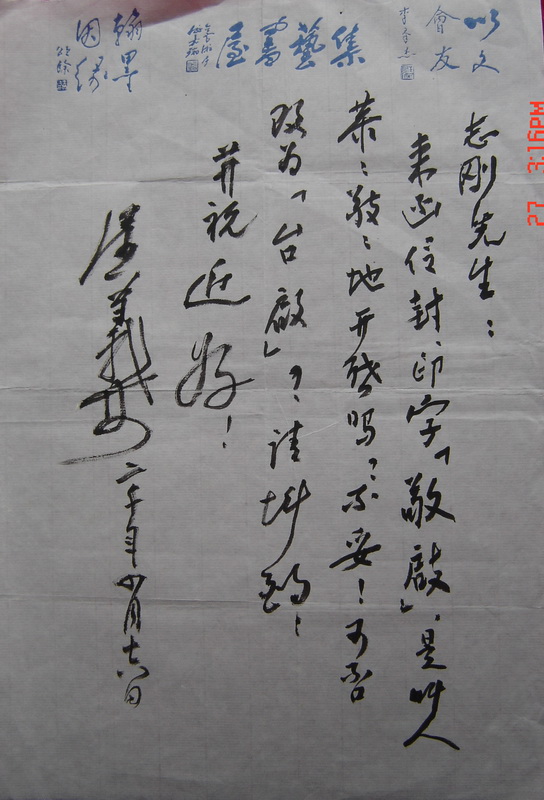 以文
會友
集藝書屋
翰墨
因緣
志刚先生：
来函信封、印字「敬啟」，是叫人
恭恭敬敬地开啟吗？不妥！可否
改为「台啟」？请斟酌！
并祝
近好！
二千年 月十六日
27 3:16PM